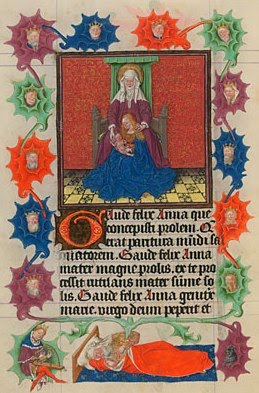 Gaude felix Anna que
concepisti prolem. Q
erat paritura mūdi sa
luatorem. Gaude felix Anna
mater magne prolis. ex te pro
cessit rutilans mater sūme so
lis. Gaude felix Anna genitrix
marie. virgo deum peperit et